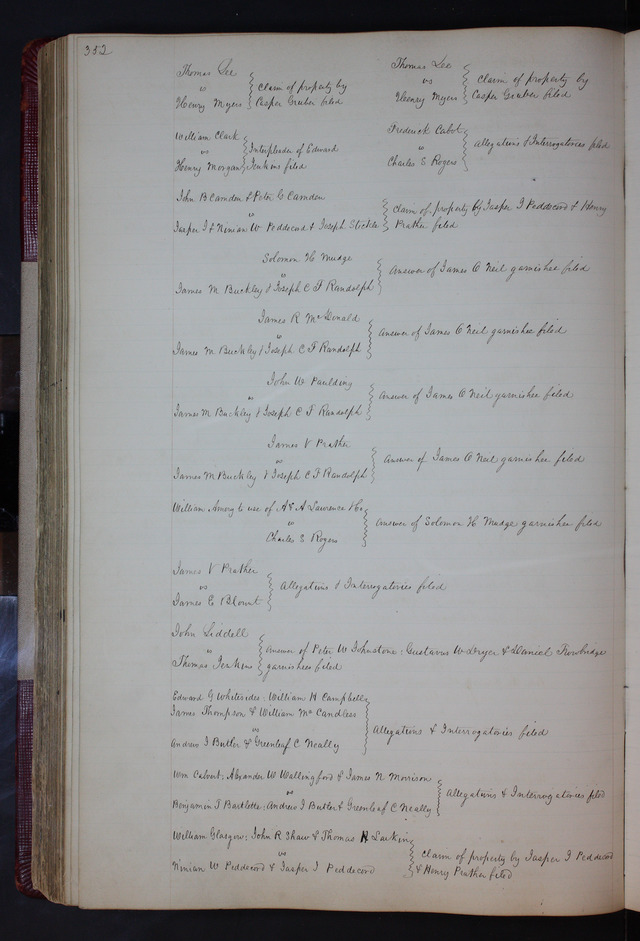 352
Thomas Lee
vs
Henry Myers
Claim of property by
Casper Gruber filed
Thomas Lee
vs
Henry Myers
Claim of property by
Casper Gruber filed
William Clark
vs
Henry Morgan
Interpleader of Edward
Jenkins filed
Frederick Cabot
vs
Charles S Rogers
Allegations & Interrogatories filed
John B Camden & Peter G Camden
vs
Jasper I & Ninian W Peddecord & Joseph Stickle
Claim of property by Jasper I Peddecord & Henry
Prather filed
Solomon H Mudge
vs
James M Buckley & Joseph C F Randolph
Answer of James O Neil garnishee filed
James R McDonald
vs
James M Buckley & Joseph C F Randolph
Answer of James O Neil garnishee filed
John W Paulding
vs
James M Buckley & Joseph C F Randolph
Answer of James O Neil garnishee filed
James V Prather
vs
James M Buckley & Joseph C F Randolph
Answer of James O Neil garnishee filed
William Amory to use of A & A Lawrence & Co
vs
Charles S Rogers
Answer of Solomon H Mudge garnishee filed
James V Prather
vs
James E Blount
Allegations & Interrogatories filed
John Liddell
vs
Thomas Jenkins
Answer of Peter W Johnstone: Gustavus W Dryer & Daniel Trowbridge
garnishees filed
Edward G Whitesides: William H Campbell
James Thompson & William McCandless
vs
Andrew I Butler & Greenleaf C Neally
Allegations & Interrogatories filed
Wm Calvert: Alexander W Wallingford & James N Morrison
vs
Benjamin T Bartlette: Andrew I Butler & Greenleaf C Neally
Allegations & Interrogatories filed
William Glasgow: John R Shaw & Thomas H Larkin
vs
Ninian W Peddecord & Jasper I Peddecord
Claim of property by Jasper I Peddecord
& Henry Prather filed